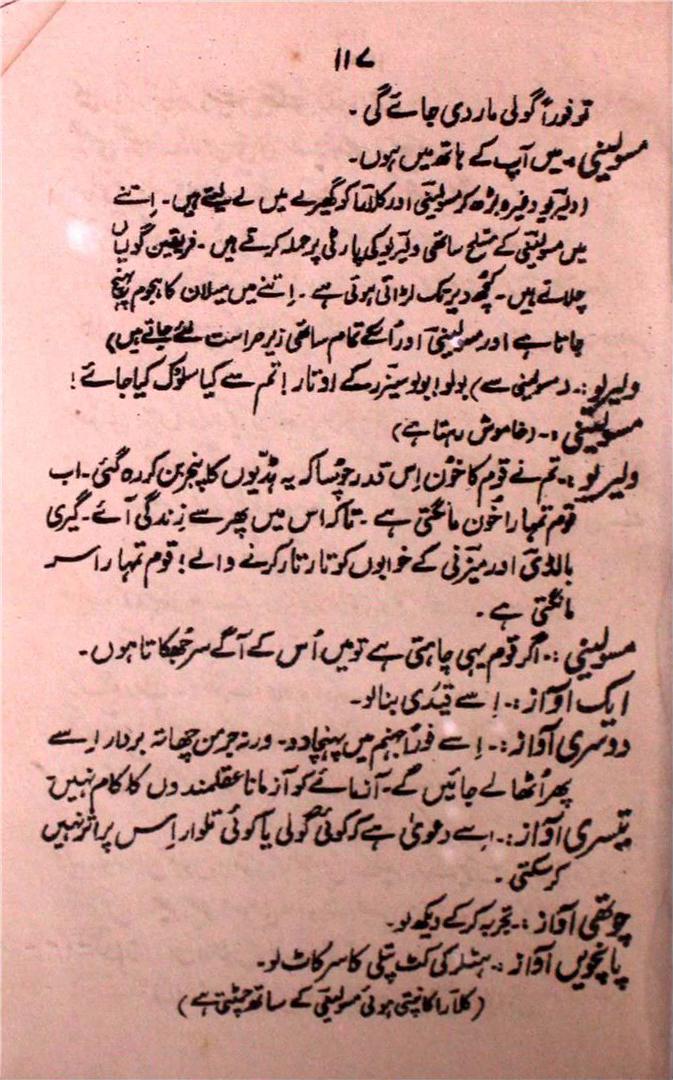 ۱۱۷
تو فوراً گولی مار دی جائے گی ۔
مسولینی :۔ میں آپ کے ہاتھ میں ہوں۔
(ولیریو وغیرہ بڑھ کر مسولینی اور کلارا کو گھیرے میں لے لیتے ہیں۔ اِتنے
میں مسولینی کے مسلح ساتھی ولیریو کی پارٹی پر حملہ کرتے ہیں۔ فریقین گولیاں
چلاتے ہیں۔ کچھ دیر تک لڑائی ہوتی ہے۔ اِتنے میں میلان کا ہجوم پہنچ
جاتا ہے اور مسولینی اور اُسکے تمام ساتھی زیر حراست لئے جاتے ہیں)
ولیریو :۔ (مسولینی سے) بولو! بولو سیزر کے اوتار! تم سے کیا سلوک کیا جائے!
مسولینی :۔ (خاموش رہتا ہے)
ولیریو :۔ تم نے قوم کا خون اِس قدر چُوسا کہ یہ ہڈیوں کا پنجر بن کر رہ گئی۔ اب
قوم تمہارا خون مانگتی ہے ۔ تاکہ اس میں پھر سے زندگی آئے۔ گیری
بالڈی اور میزنی کے خوابوں کو تار تار کرنے والے! قوم تمہارا سر
مانگتی ہے ۔
مسولینی :۔ اگر قوم یہی چاہتی ہے تو میں اُس کے آگے سر جُھکاتا ہوں۔
ایک آواز :۔ اِسے قیدی بنا لو۔
دوسری آواز :۔ اِسے فوراً جہنم میں پہنچا دو۔ ورنہ جرمن چھاتہ بردار اِسے
پھر اُٹھا لے جائیں گے۔ آزمائے کو آزمانا عقلمندوں کا کام نہیں
تیسری آواز :۔ اِسے دعویٰ ہے کہ کوئی گولی یا کوئی تلوار اِس پر اثر نہیں
کر سکتی ۔
چوتھی آواز :۔ تجربہ کرکے دیکھ لو۔
پانچویں آواز :۔ ہٹلر کی کٹ پتلی کا سر کاٹ لو۔
(کلارا کانپتی ہوئی مسولینی کے ساتھ چمٹتی ہے)